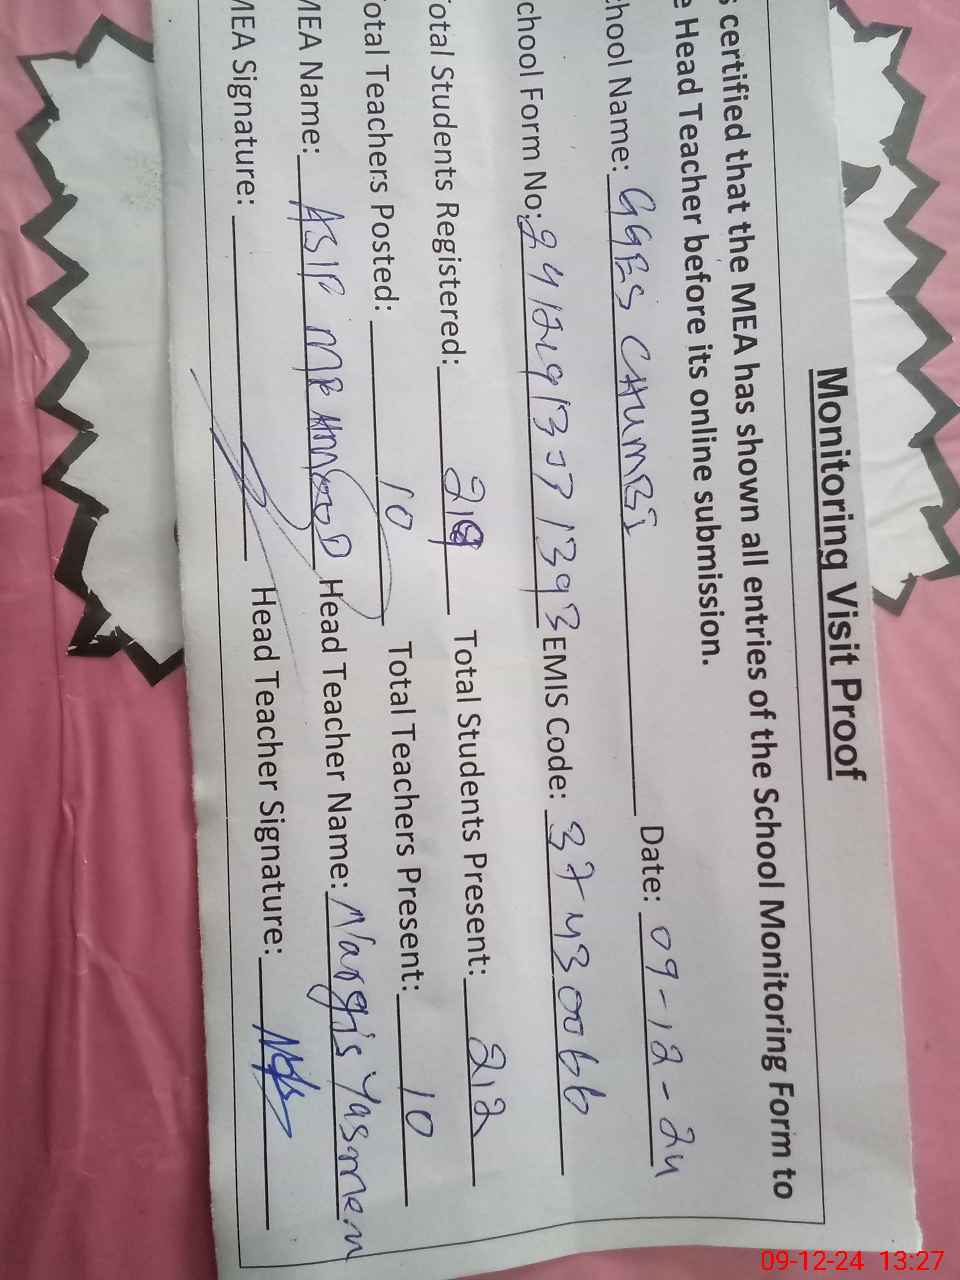 Monitoring Visit Proof
s certified that the MEA has shown all entries of the School Monitoring Form to
e Head Teacher before its online submission.
chool Name: GGES CHUMBI Date: 09-12-24
chool Form No: EMIS Code: 37430066
otal Students Registered: 219 Total Students Present: 212
otal Teachers Posted: 10 Total Teachers Present: 10
MEA Name: ASIF MEHMOOD Head Teacher Name: Nargis Yasmeen
MEA Signature: Head Teacher Signature:
09-12-24 13:27